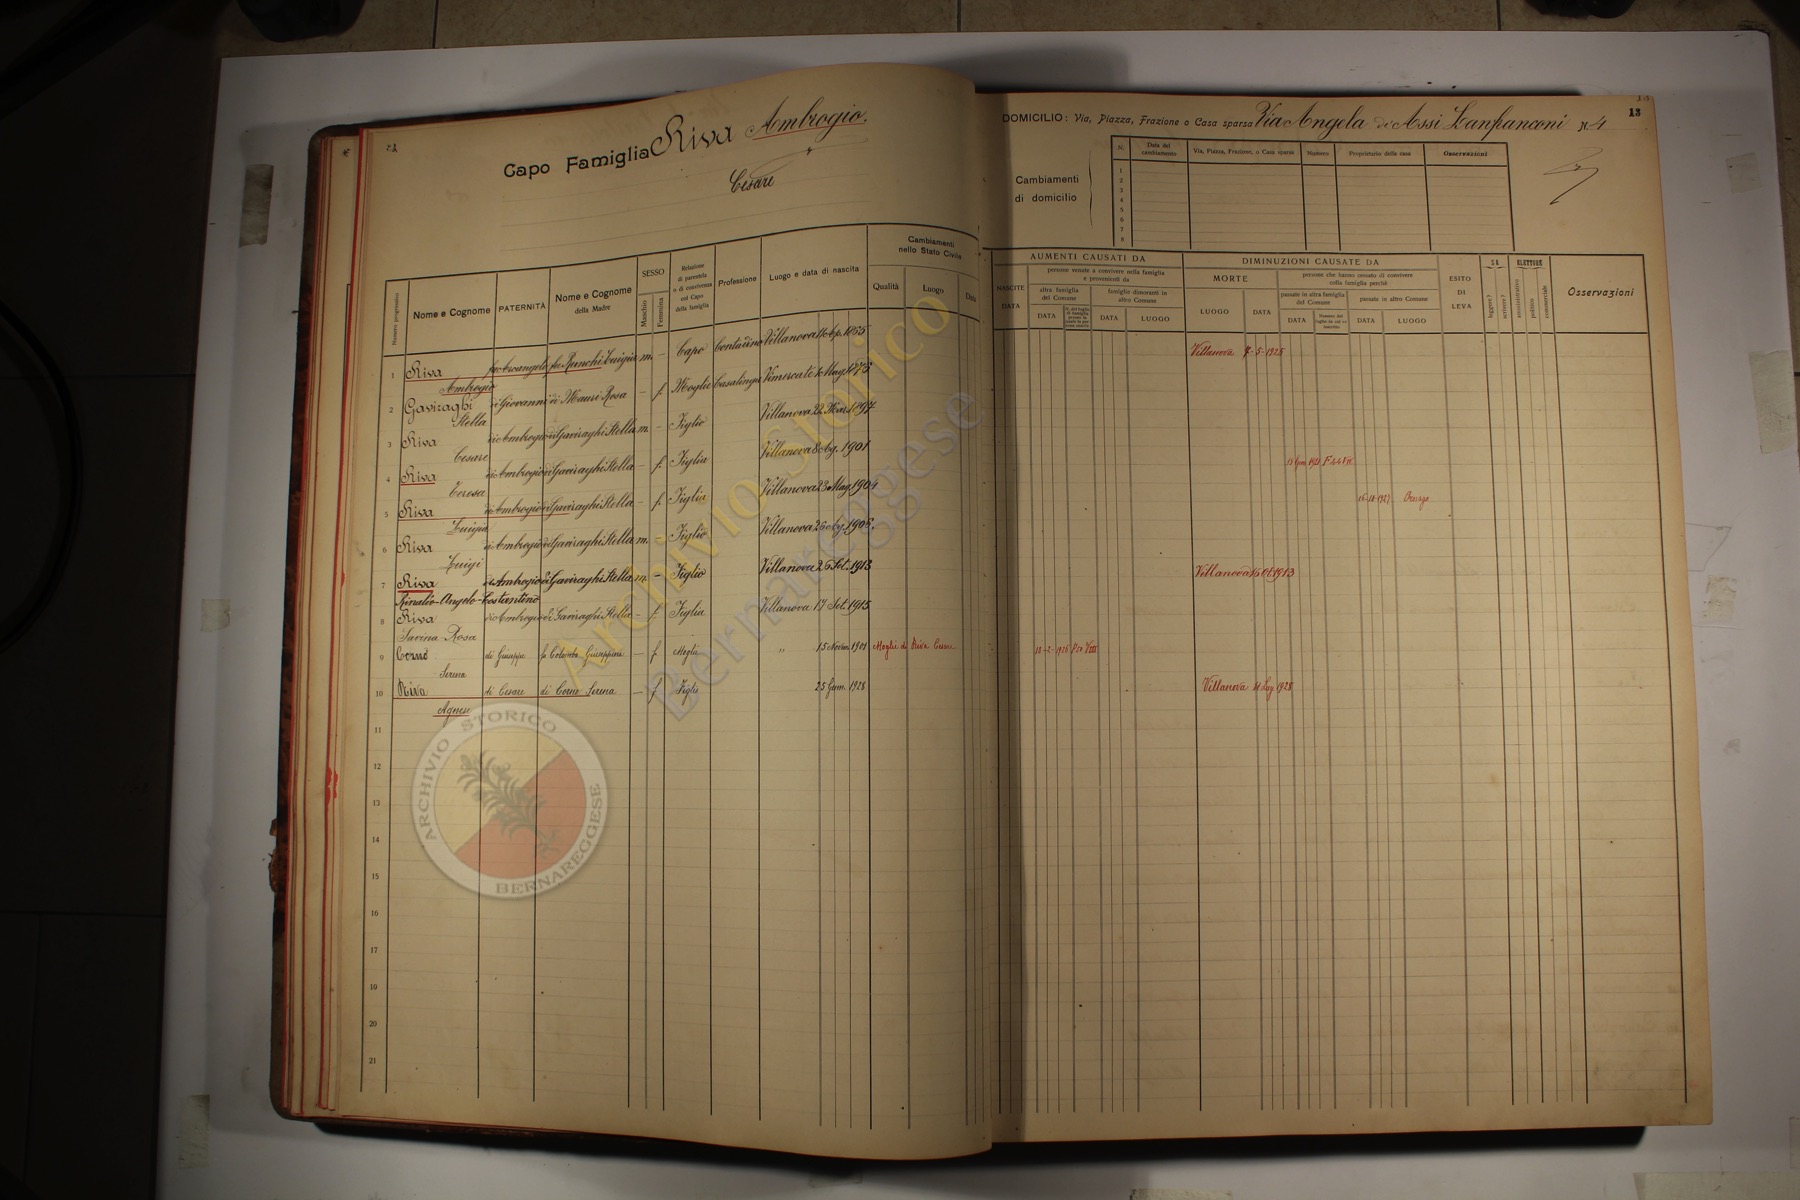 Capo Famiglia Riva Ambrogio.
Cesare
DOMICILIO: Via, Piazza, Frazione o Casa sparsa Via Angela de' Assi Lanfranconi N. 4
13
Cambiamenti di domicilio
N. Data del cambiamento Via, Piazza, Frazione, o Casa sparsa Numero Proprietario della casa Osservazioni
1
2
3
4
5
6
7
8
Numero progressivo Nome e Cognome PATERNITÀ Nome e Cognome della Madre SESSO Maschio Femmina Relazione di parentela o di convivenza col Capo della famiglia Professione Luogo e data di nascita Cambiamenti nello Stato Civile Qualità Luogo Data
AUMENTI CAUSATI DA
NASCITE DATA
persone venute a convivere nella famiglia e provenienti da
altra famiglia del Comune
DATA
famiglie dimoranti in altro Comune
DATA LUOGO
DIMINUZIONI CAUSATE DA
MORTE
LUOGO DATA
persone che hanno cessato di convivere colla famiglia perchè
passate in altra famiglia del Comune
DATA
passate in altro Comune
DATA LUOGO
ESITO DI LEVA
SA leggere? scrivere?
ELETTORE amministrativo politico commerciale
Osservazioni
1 Riva Ambrogio fu Arcangelo fu Ronchi Luigia m. – Capo Contadino Villanova 14 1855 Villanova 7-5-1928
2 Gaviraghi Stella di Giovanni di Mauri Rosa – f. Moglie Casalinga Vimercate Mag. 1873
3 Riva Cesare di Ambrogio di Gaviraghi Stella m. – Figlio Villanova 22 Mar. 1897
4 Riva Teresa di Ambrogio di Gaviraghi Stella – f. Figlia Villanova 8 Ag. 1901
5 Riva Luigia di Ambrogio di Gaviraghi Stella – f. Figlia Villanova 23 Mag. 1904 1927
6 Riva Luigi di Ambrogio di Gaviraghi Stella m. – Figlio Villanova 26 Ag.
7 Riva Rinaldo-Angelo-Costantino di Ambrogio di Gaviraghi Stella m. – Figlio Villanova 26 Set. 1913 Villanova 16 Ot. 1913
8 Riva Savina Rosa di Ambrogio di Gaviraghi Stella – f. Figlia Villanova 17 Set. 1915
9 Corno Serena di Giuseppe fu Colombo Giuseppina – f Moglie " 15 Novem. 1901 Moglie di Riva Cesare
10 Riva Agnese di Cesare di Corno Serena – f Figlia 25 Genn. 1928 Villanova Lug. 1928
11
12
13
14
15
16
17
19
20
21
Archivio Storico Bernareggese
ARCHIVIO STORICO
BERNAREGGESE